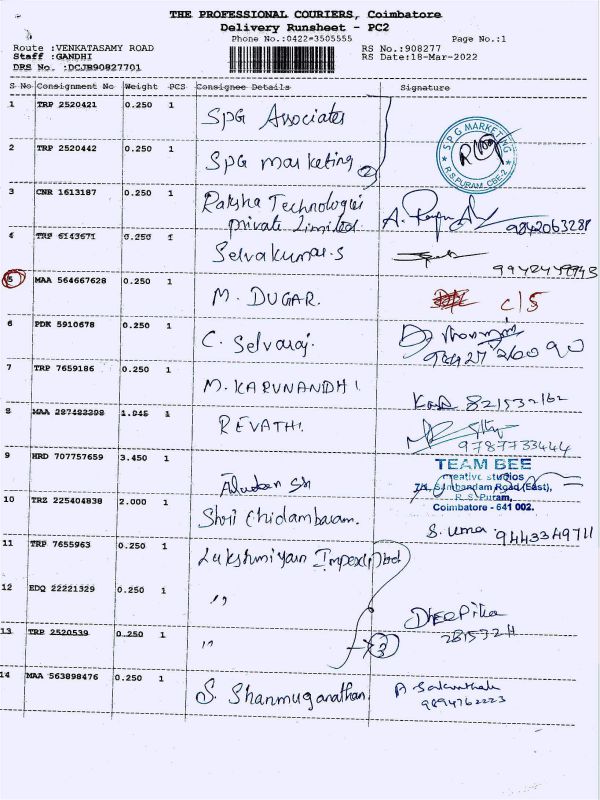 THE PROFESSIONAL COURIERS, Coimbatore
Delivery Runsheet - PC2
Phone No.:0422-3505555 Page No.:1
Route :VENKATASAMY ROAD RS No.:908277
Staff :GANDHI RS Date:18-Mar-2022
DRS No. :DCJB90827701
S No Consignment No Weight PCS Consignee Details Signature
1 TRP 2520421 0.250 1 SPG Associates
2 TRP 2520442 0.250 1 SPG marketing 2
SPG MARKETING R.S.PURAM, CBE-2
3 CNR 1613187 0.250 1 Raksha Technologies
private Limited 9842063281
4 TRP 6143671 0.250 1 Selvakumar.S
5 MAA 564667628 0.250 1 M. DUGAR. C/S
6 PDK 5910678 0.250 1 C. Selvaraj.
7 TRP 7659186 0.250 1 M. KARUNANDHI
8 MAA 287482398 1.045 1 REVATHI. 9787733444
9 HRD 707757659 3.450 1
TEAM BEE
Creative studios
Sambandam Road (East),
R.S. Puram,
Coimbatore - 641 002.
10 TRZ 225404838 2.000 1 Shri Chidambaram. S. Uma 9443349711
11 TRP 7655963 0.250 1 Lakshmiyam Impex
12 EDQ 22221329 0.250 1 ,, Deepika
13 TRP 2520539 0.250 1 ,, 3
14 MAA 563898476 0.250 1 S. Shanmuganathan. 9894762223